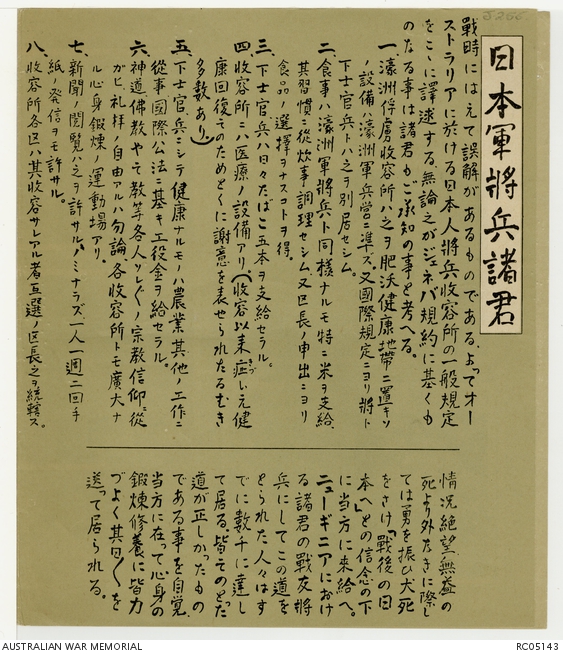 5255
日本軍將兵諸君
戰時にはえて誤解があるものである、よってオー
ストラリアに於ける日本人將兵收容所の一般規定
をこゝに譯述する、無論之がジェネバ規約に基くも
のたる事は諸君もご承知の事と考へる。
一、濠洲俘虜收容所ハ之ヲ肥沃健康地帶ニ置キソ
ノ設備ハ濠洲軍兵營ニ準ズ、又國際規定ニヨリ將ト
下士官兵トハ之ヲ別居セシム。
二、食事ハ濠洲軍將兵ト同樣ナルモ特ニ米ヲ支給、
其習慣ニ從炊事調理セシム、又区長ノ申出ニヨリ
食品ノ選擇ヲナスコトヲ得。
三、下士官兵ハ日々たばこ五本ヲ支給セラル。
四、收容所ニハ医療ノ設備アリ(收容以来症いえ健
康回復そのためとくに謝意を表せられたるむき
多数あり)
五、下士官、兵ニシテ健康ナルモノハ農業其他ノ工作ニ
從事國際公法ニ基キ工役金ヲ給セラル。
六、神道佛教やそ教等各人ソレゾレノ宗教信仰ニ從
ガヒ礼拜ノ自由アルハ勿論各收容所トモ廣大ナ
ル心身鍛煉ノ運動場アリ。
七、新聞ノ閲覽ハ之ヲ許サルノミナラズ一人一週二回手
紙ノ発信ヲモ許サル。
八、收容所各区ハ其收容サレアル者互選ノ区長之ヲ統轄ス。
情況絶望、無益の
死より外なきに際し
ては勇を振ひ犬死
をさけ「戰後の日
本へ」との信念の下
に当方に来給へ。
ニューギニアにおけ
る諸君の戰友將
兵にしてこの道を
とられた人々はす
でに数千に達し
て居る、皆そのとった
道が正しかったもの
である事を自覺、
当方に在って心身の
鍛煉修養に皆力
づよく其日〱を
送って居られる。
AUSTRALIAN WAR MEMORIAL
RC05143